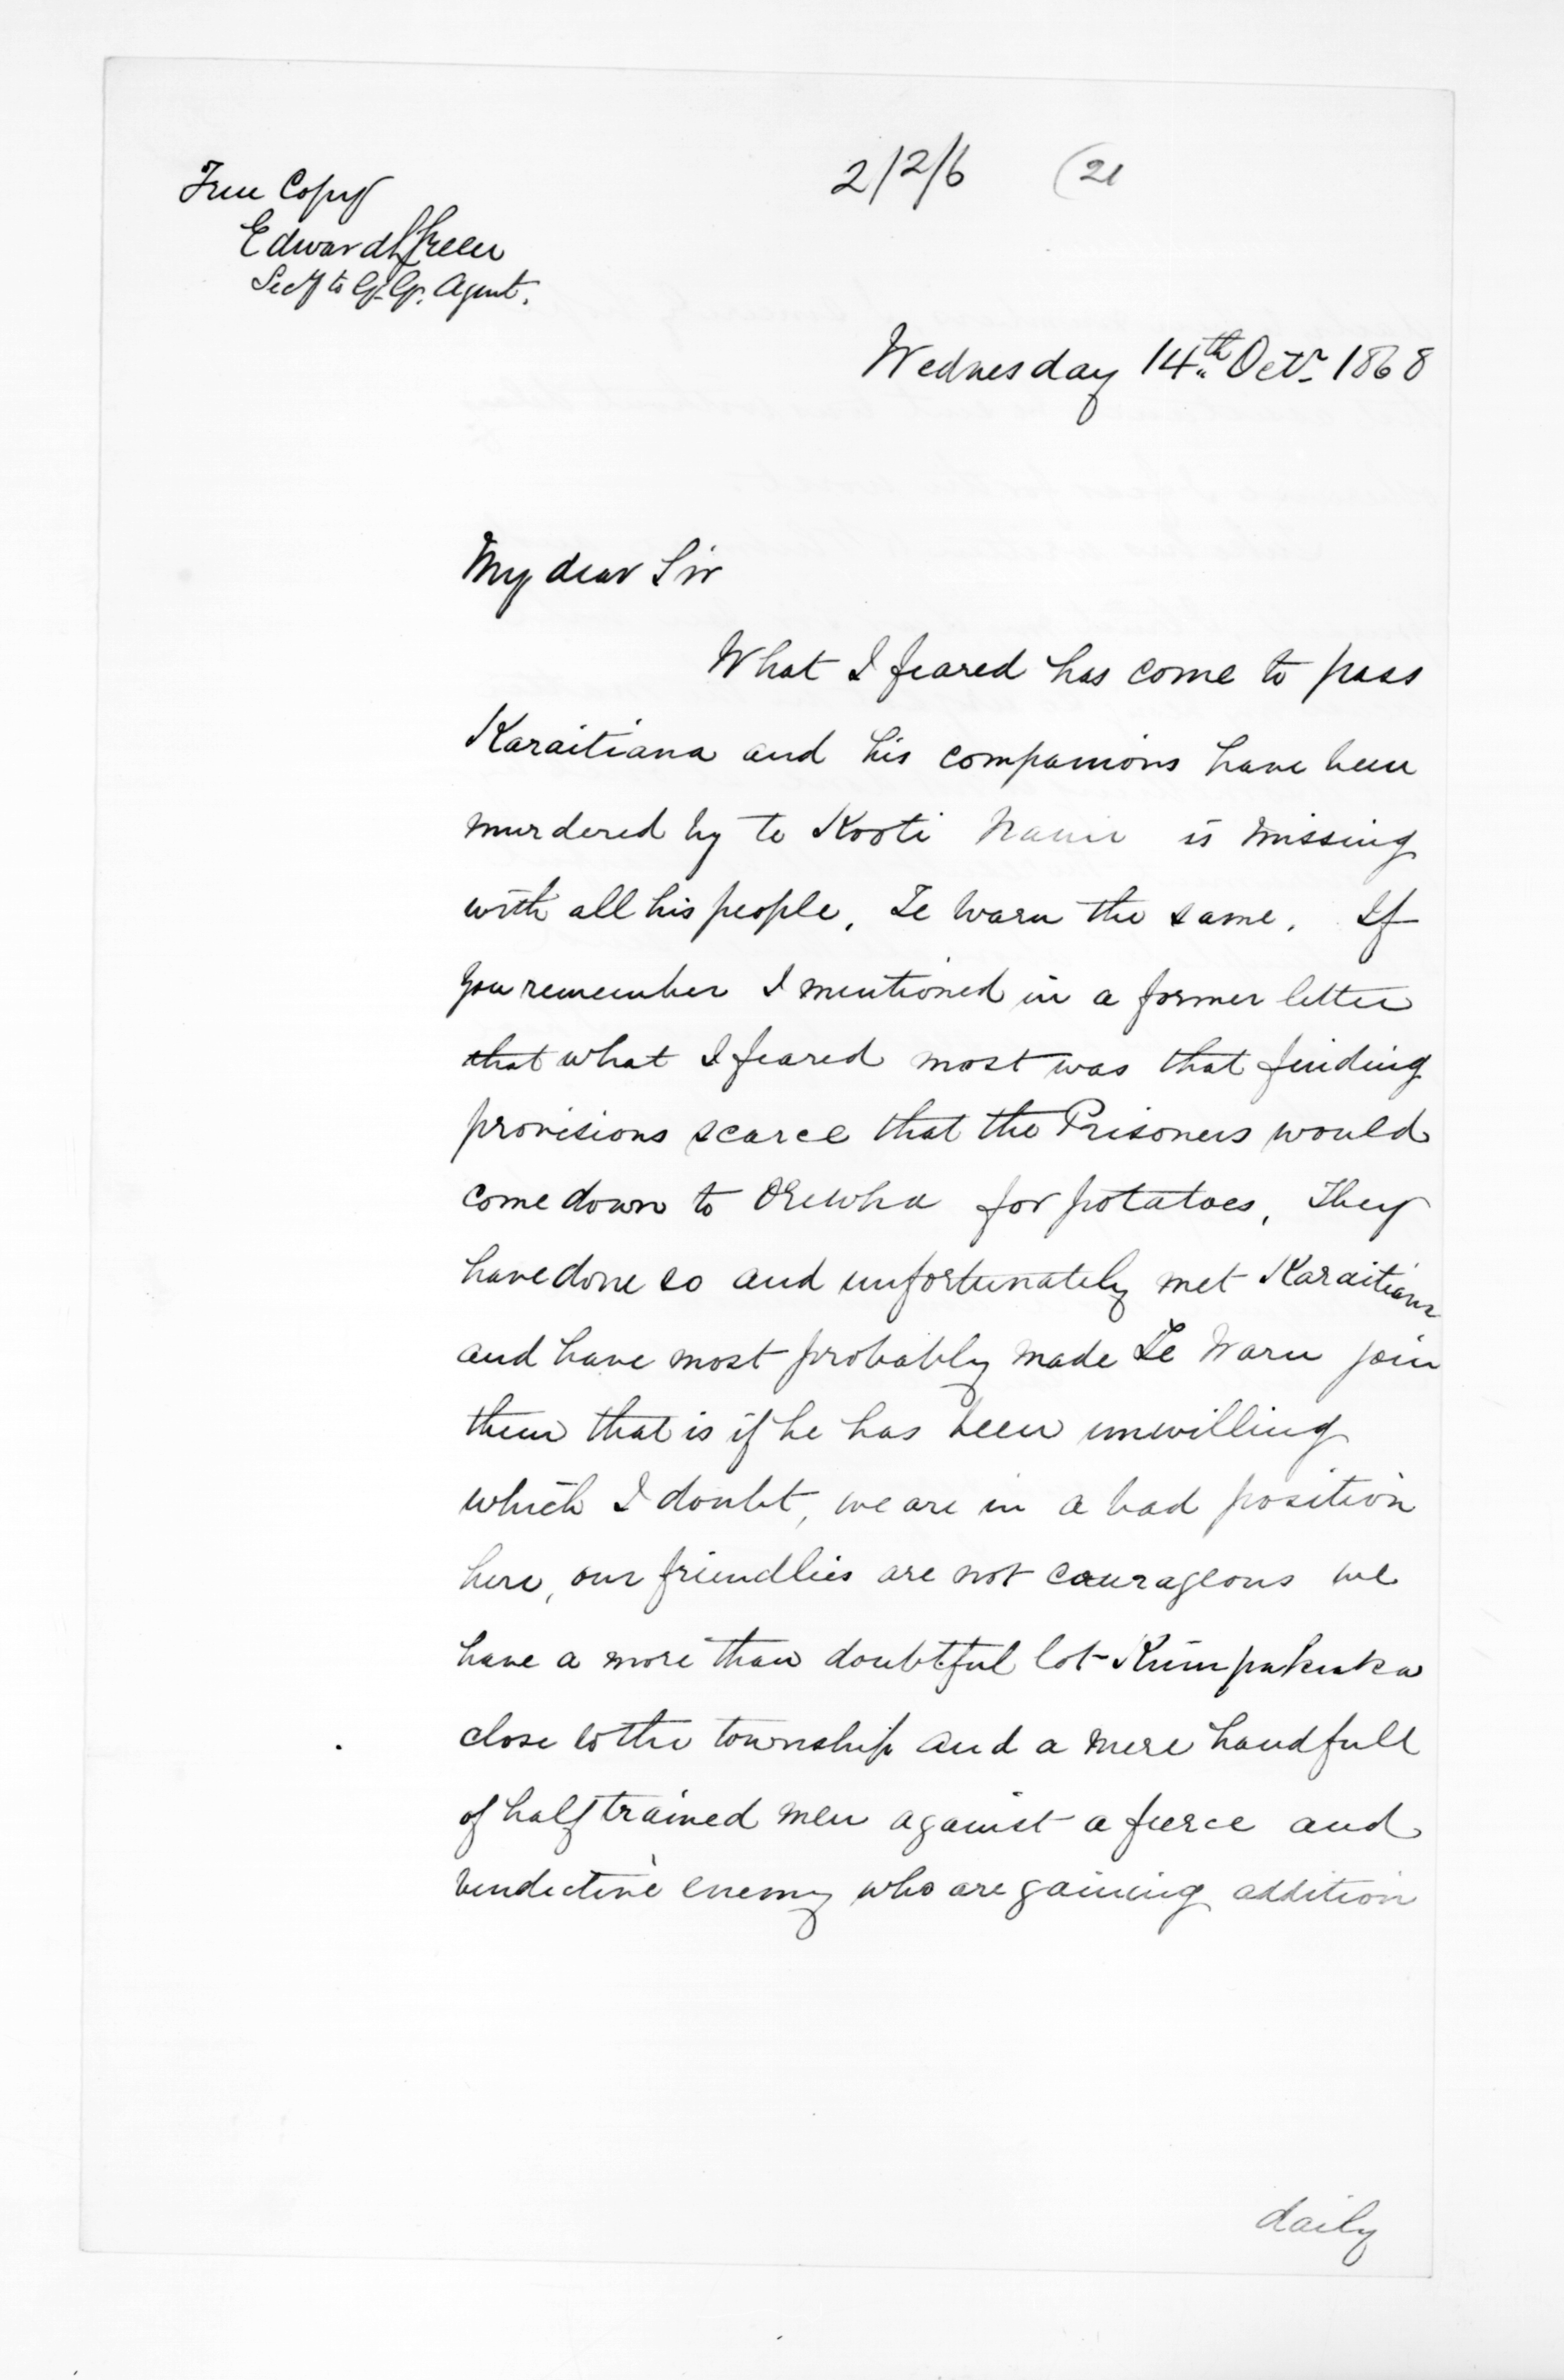 True Copy
Edward L Green
Secy to G. G. Agent.
2/2/6 (21
Wednesday 14th. Octr. 1868
My dear Sir
What I feared has come to pass
Karaitiana and his companions have been
murdered by te Kooti is missing
with all his people. Te Waru the same. If
you remember I mentioned in a former letter
that what I feared most was that finding
provisions scarce that the Prisoners would
come down to for potatoes, They
have done so and unfortunately met Karaitiana
and have most probably made Te Waru join
them that is if he has been unwilling
which I doubt, we are in a bad position
here, our friendlies are not courageous we
have a more than doubtful lot
close to the township and a mere handfull
of half trained men against a fierce and
vindictive enemy who are gaining addition
daily